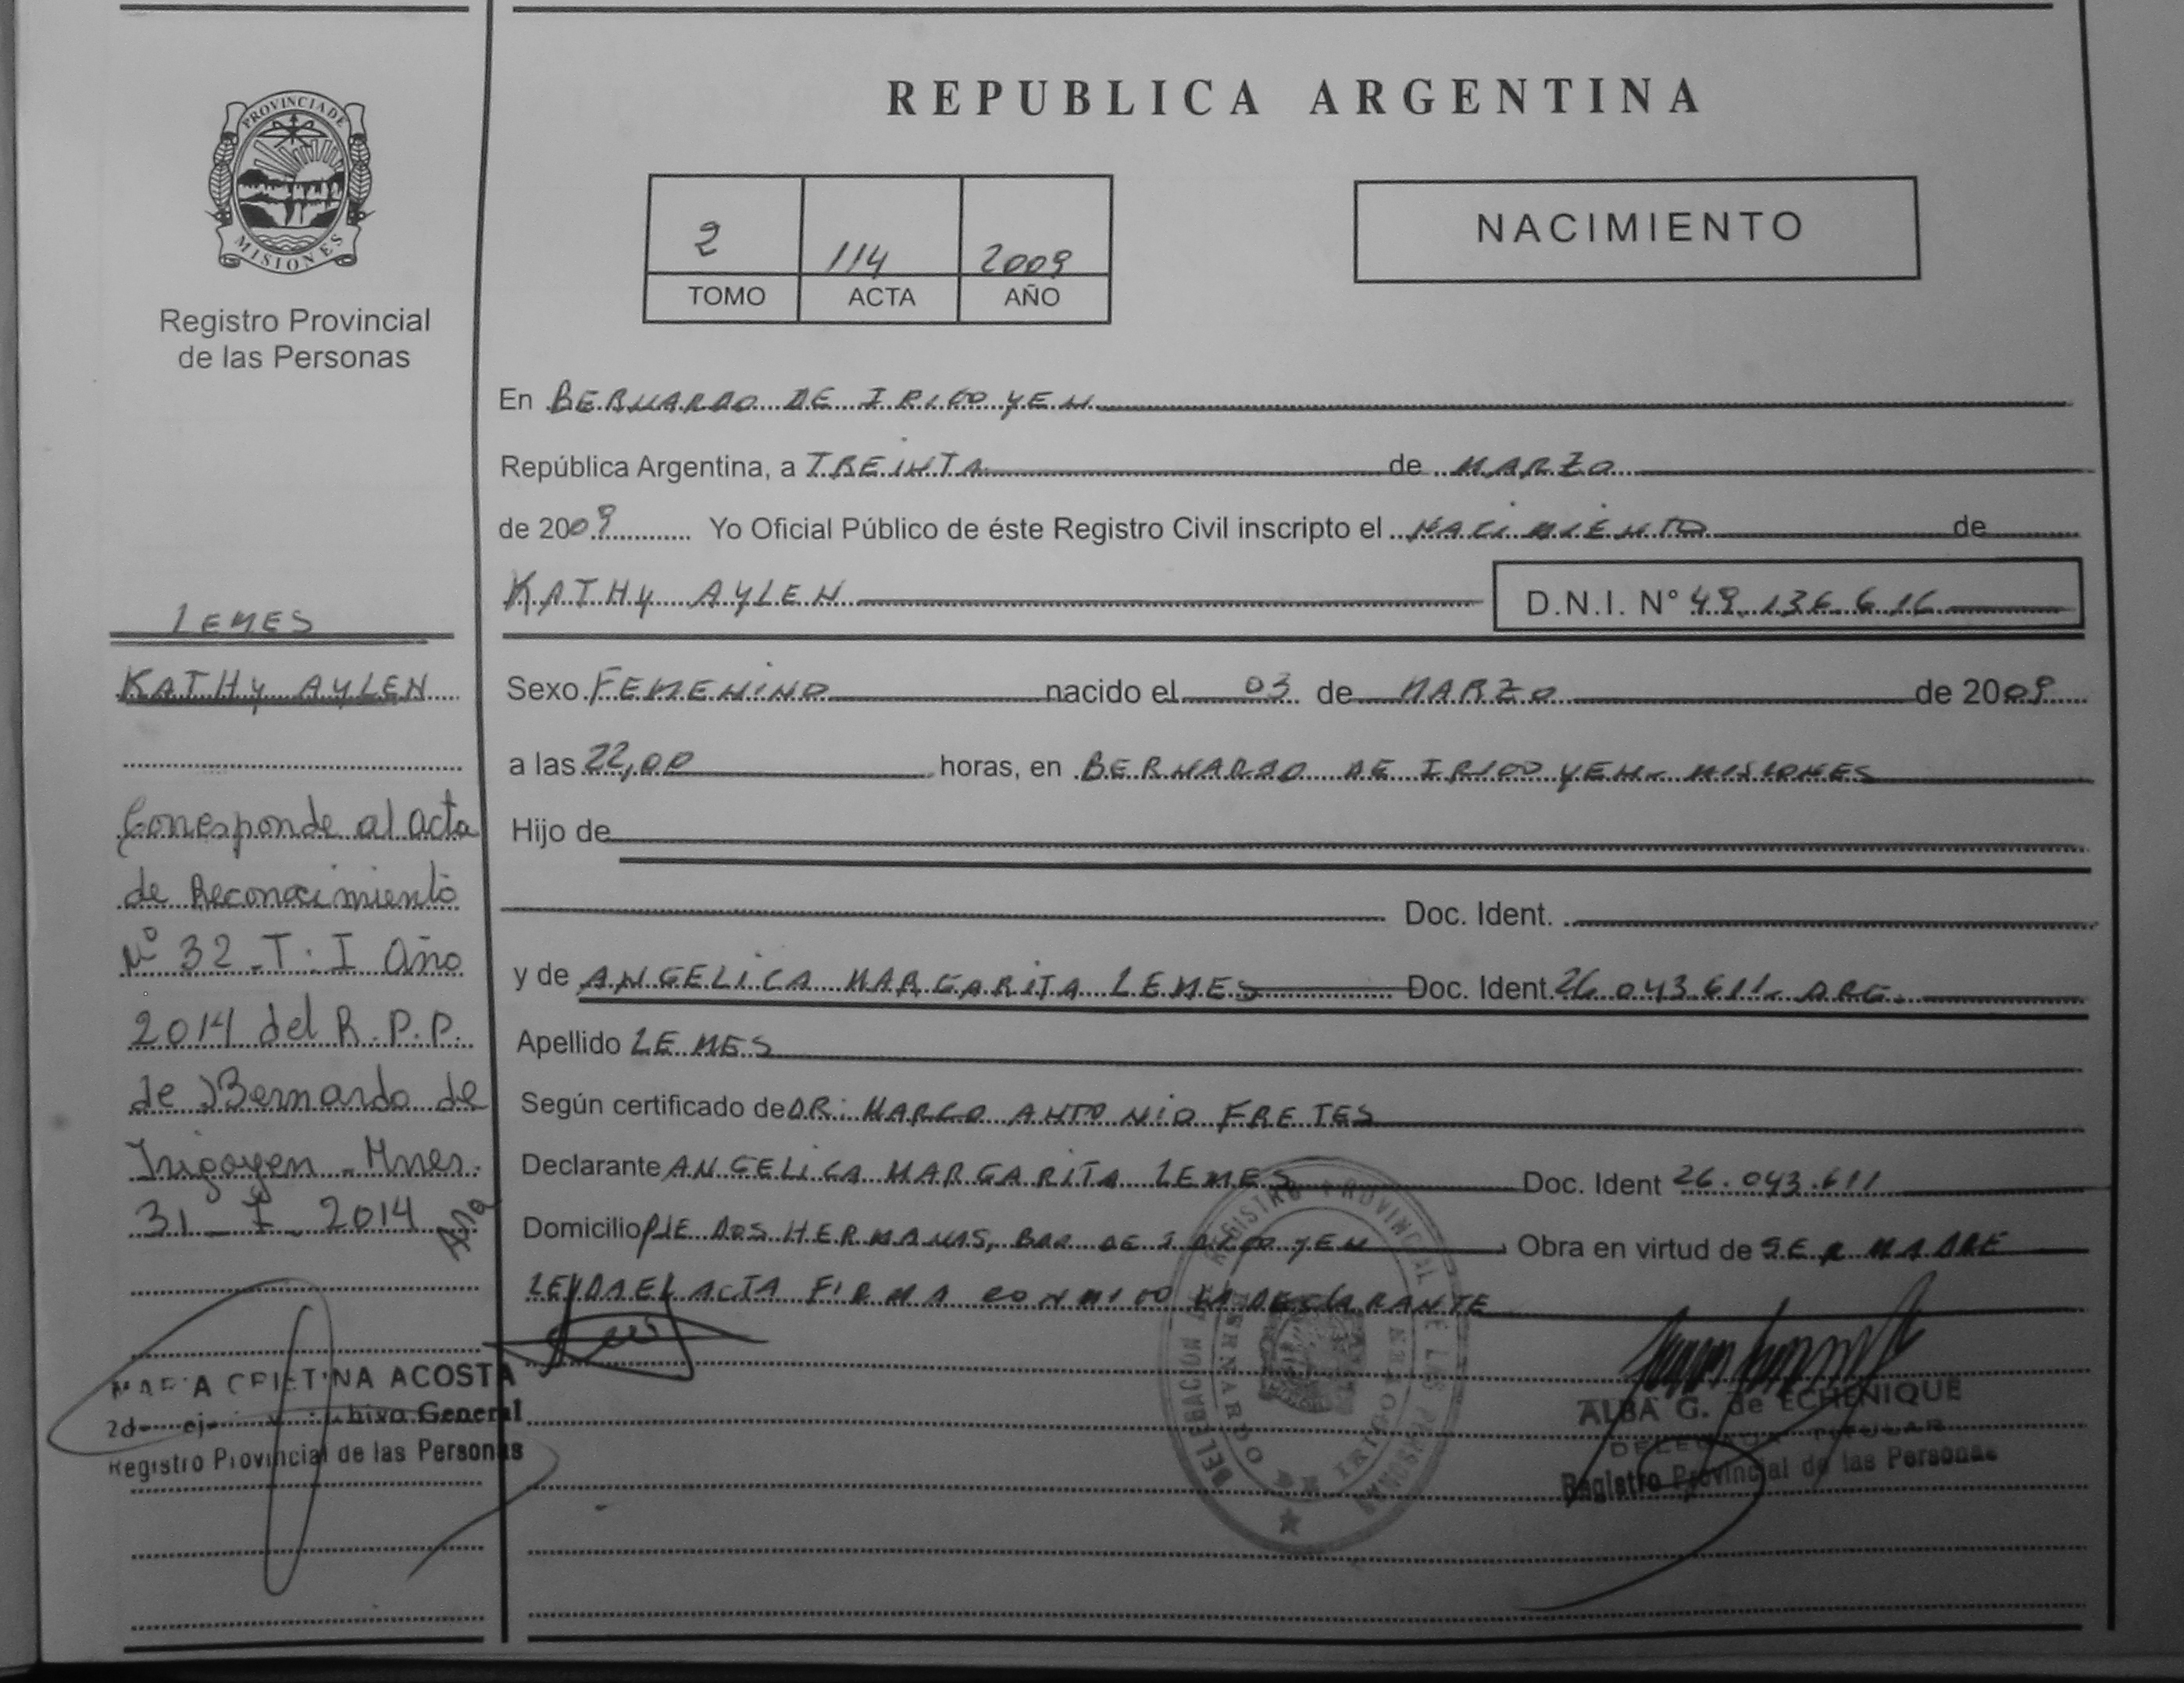 PROVINCIA DE
MISIONES
Registro Provincial
de las Personas
LEMES
KATHY AYLEN
Corresponde al acta
de Reconocimiento
N° 32 - T: I Año
2014 del R.P.P.
de Bernardo de
Irigoyen - Mnes.
31 - I - 2014
MARIA CRISTINA ACOSTA
General
Registro Provincial de las Personas
REPUBLICA ARGENTINA
2 114 2009
TOMO ACTA AÑO
NACIMIENTO
En BERNARDO DE IRIGOYEN
República Argentina, a TREINTA de MARZO
de 2009 Yo Oficial Público de éste Registro Civil inscripto el NACIMIENTO de
KATHY AYLEN D.N.I. N° 49.136.616
Sexo FEMENINO nacido el 03 de MARZO de 2009
a las 22,00 horas, en BERNARDO DE IRIGOYEN - MISIONES
Hijo de
Doc. Ident.
y de ANGELICA MARGARITA LEMES Doc. Ident. 26.043.611 - ARG.
Apellido LEMES
Según certificado de DR: MARCO ANTONIO FRETES
Declarante ANGELICA MARGARITA LEMES Doc. Ident 26.043.611
Domicilio PJE DOS HERMANAS, BDO DE IRIGOYEN Obra en virtud de SER MADRE
LEIDA EL ACTA FIRMA CONMIGO LA DECLARANTE
DELEGACION REGISTRO PROVINCIAL DE LAS PERSONAS
BERNARDO IRIGOYEN
ALBA G. de ECHENIQUE
DELEGADA TITULAR
Registro Provincial de las Personas